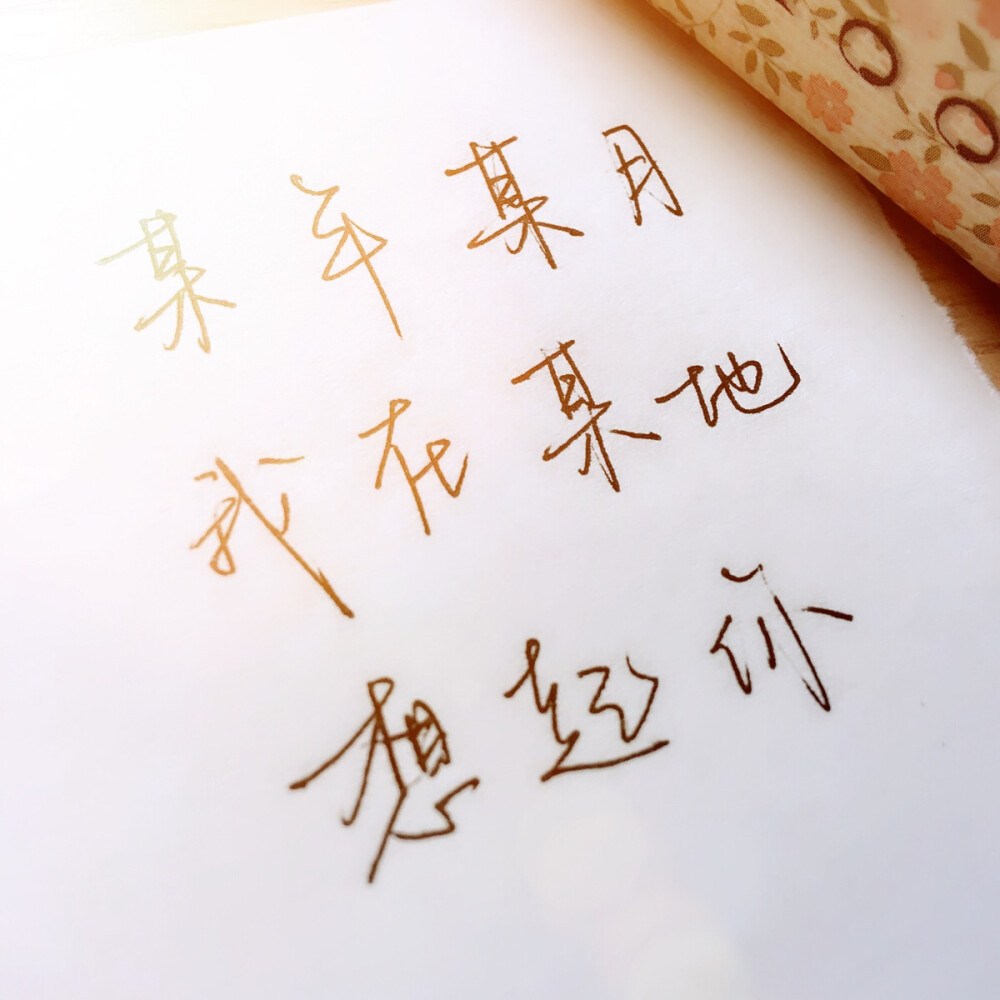 某年某月
我在某地
想起你